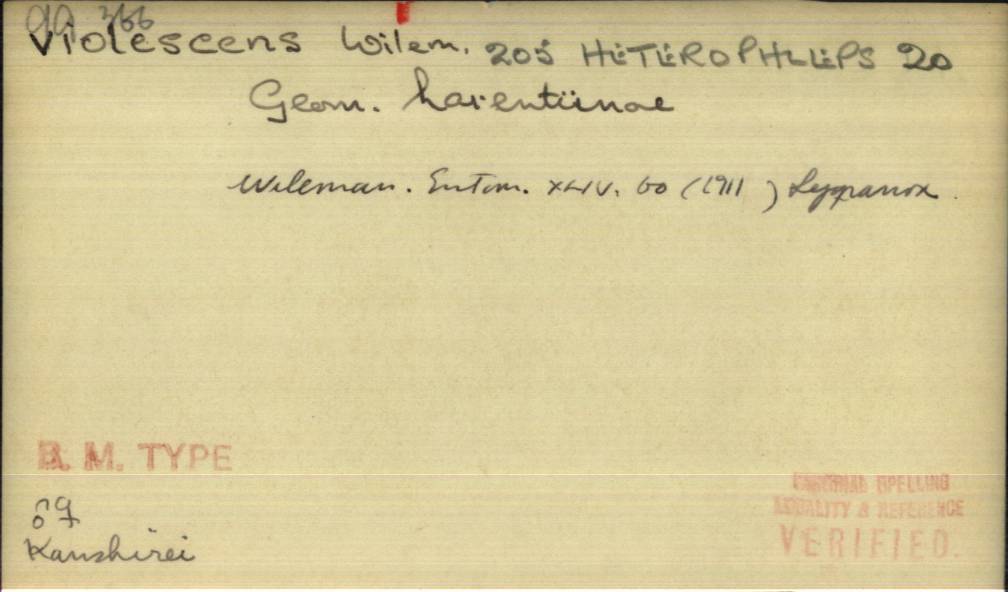 99 366
Violescens Wilem. 205 HETEROPHLEPS 20
Geom. Larentiinae
Wileman. Entom. XLIV. 60 (1911) Lygranoa
B. M. TYPE
♂♀
Kanshirei
ORIGINAL SPELLING
LOCALITY & REFERENCE
VERIFIED.